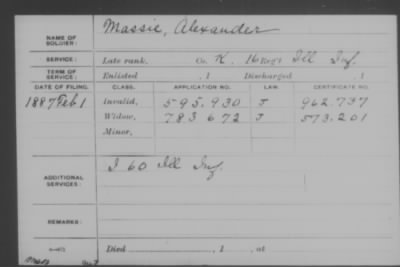 NAME OF SOLDIER: Massie, Alexander
SERVICE: Late rank, Co. K. 16 Reg't Ill Inf.
TERM OF SERVICE: Enlisted , 1 Discharged , 1
DATE OF FILING. CLASS. APPLICATION NO. LAW. CERTIFICATE NO.
1887 Feb 1 Invalid, 595.930 J 962.737
Widow, 783672 J 573.201
Minor,
ADDITIONAL SERVICES: I 60 Ill Inf.
REMARKS:
Died , 1 , at